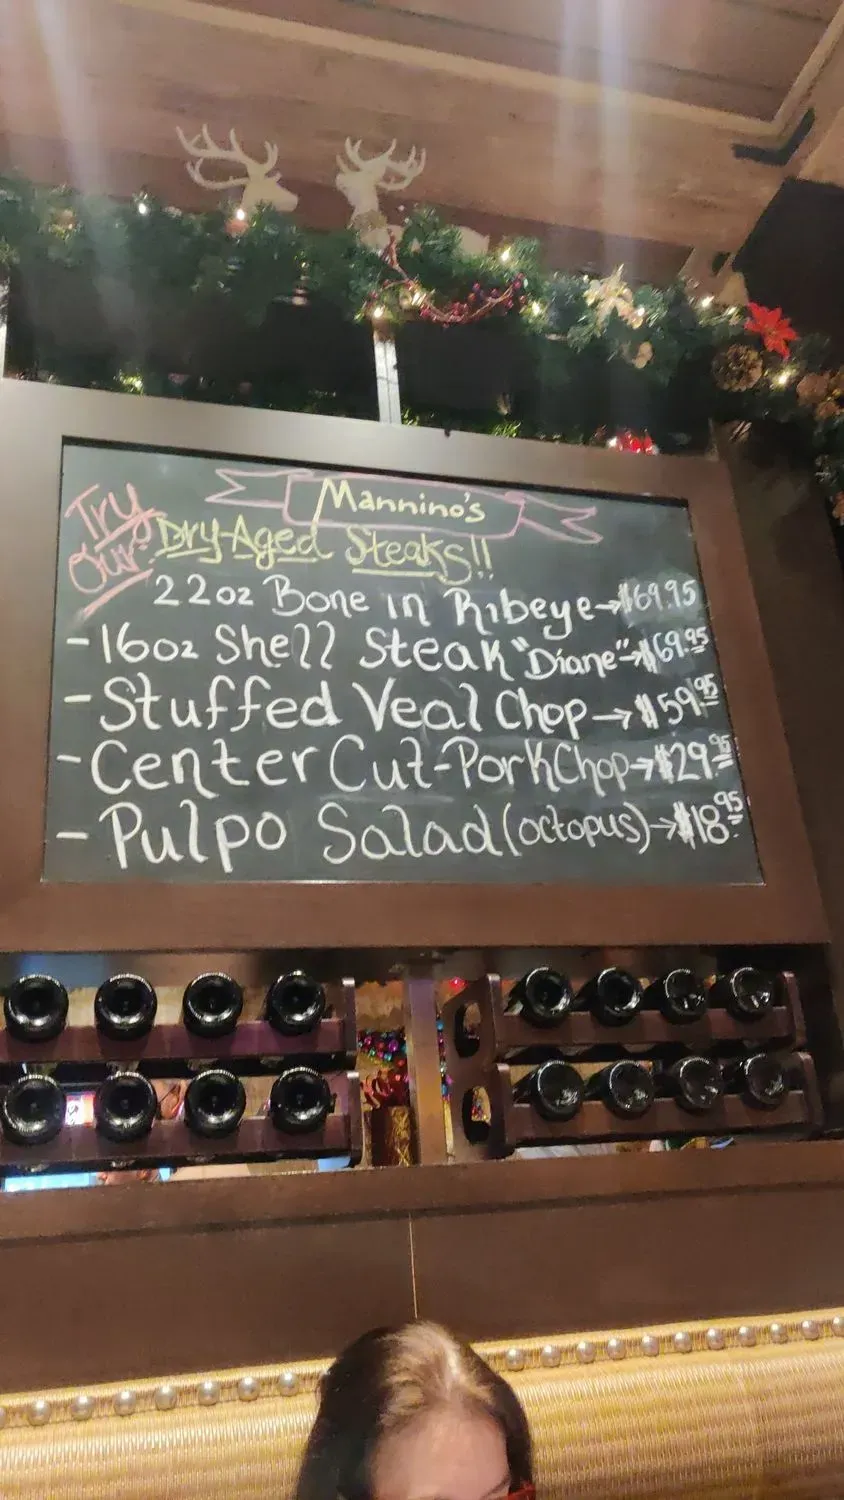 Mannino's
Try Our: Dry-Aged Steaks!!
22oz Bone in Ribeye→$69.95
-16oz Shell Steak "Diane"→$69.95
-Stuffed Veal Chop→$59.95
-Center Cut-Pork Chop→$29.95
-Pulpo Salad (octopus)→$18.95